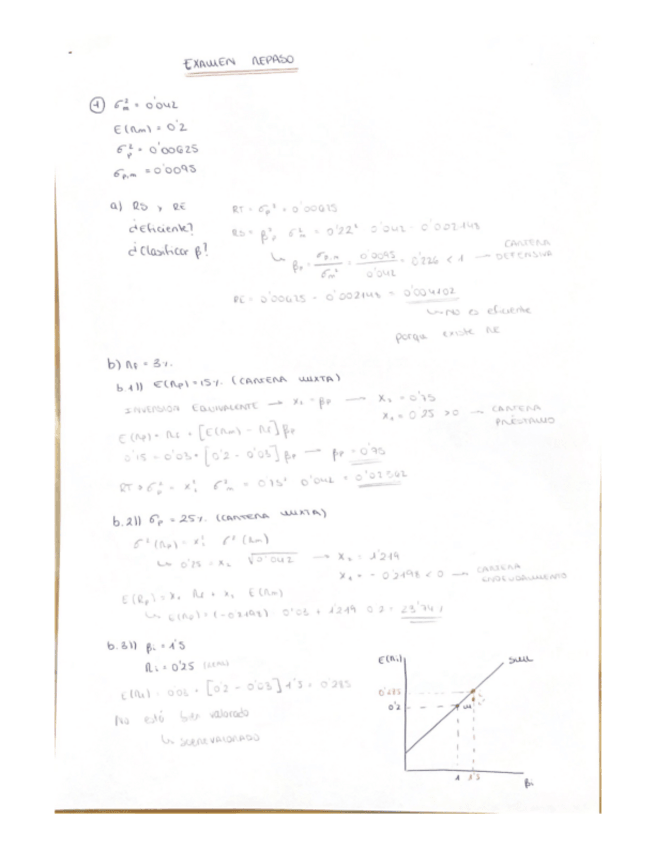 EXAMEN REPASO
① σ²m = 0'042
E(Rm) = 0'2
σ²p = 0'00625
σp,m = 0'0095
a) RS y RE
¿Eficiente?
¿Clasificar β?
RT = σp² = 0'00625
RS = β²p σ²m = 0'22² 0'042 = 0'002148
↳ βp = σp,m / σm² = 0'0095 / 0'042 = 0'226 < 1 → CARTERA DEFENSIVA
RE = 0'00625 - 0'002148 = 0'004102
↳ no es eficiente
porque existe RE
b) Rf = 3%
b.1)) E(Rp) = 15% (CARTERA MIXTA)
INVERSION EQUIVALENTE → X₁ = βp → X₁ = 0'75
Xf = 0'25 > 0 → CARTERA PRÉSTAMO
E(Rp) = Rf + [E(Rm) - Rf] βp
0'15 = 0'03 + [0'2 - 0'03] βp → βp = 0'75
RT → σ²p = X²₁ σ²m = 0'75² 0'042 =
b.2)) σp = 25% (CARTERA MIXTA)
σ²(Rp) = X²₁ σ²(Rm)
↳ 0'25 = X₁ √0'042 → X₁ = 1'219
= -0'2198 < 0 → CARTERA ENDEUDAMIENTO
E(Rp) = Xf Rf + X₁ E(Rm)
↳ E(Rp) = (-0'2198) 0'03 + 1'219 0'2 = 23'74%
b.3)) βi = 1'5
Ri = 0'25
E(Ri) = 0'03 + [0'2 - 0'03] 1'5 = 0'285
No está bien valorado
↳ SOBREVALORADO
E(Ri)
SML
0'285
0'2
M
1 1'5
βi